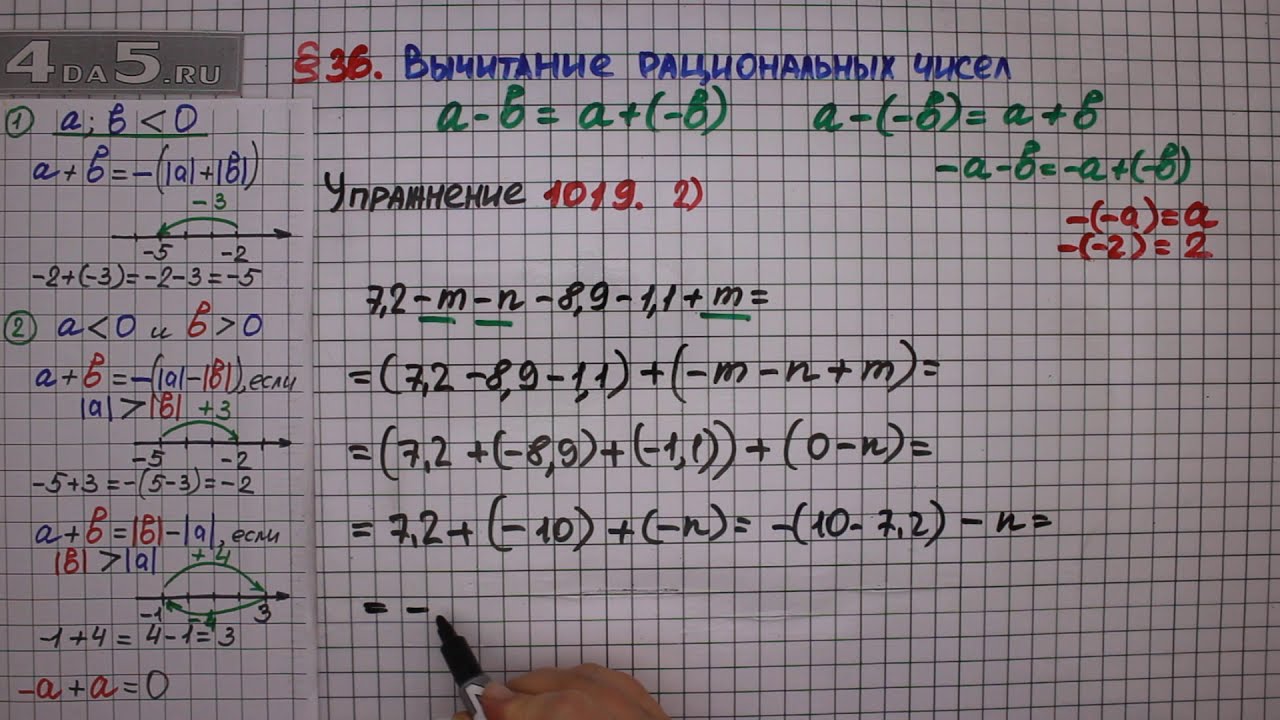 4DA5.RU
§ 36. Вычитание рациональных чисел
a - b = a + (-b)    a - (-b) = a + b
-a - b = -a + (-b)
Упражнение 1019. 2)
-(-a) = a
-(-2) = 2
7,2 - m - n - 8,9 - 1,1 + m =
= (7,2 - 8,9 - 1,1) + (-m - n + m) =
= (7,2 + (-8,9) + (-1,1)) + (0 - n) =
= 7,2 + (-10) + (-n) = -(10 - 7,2) - n =
= -
① a; b < 0
a + b = -(|a| + |b|)
-3
-5    -2
-2 + (-3) = -2 - 3 = -5
② a < 0 и b > 0
a + b = -(|a| - |b|), если
|a| > |b|    +3
-5    -2
-5 + 3 = -(5 - 3) = -2
a + b = |b| - |a|, если
|b| > |a|    +4
-1    -4    3
-1 + 4 = 4 - 1 = 3
-a + a = 0